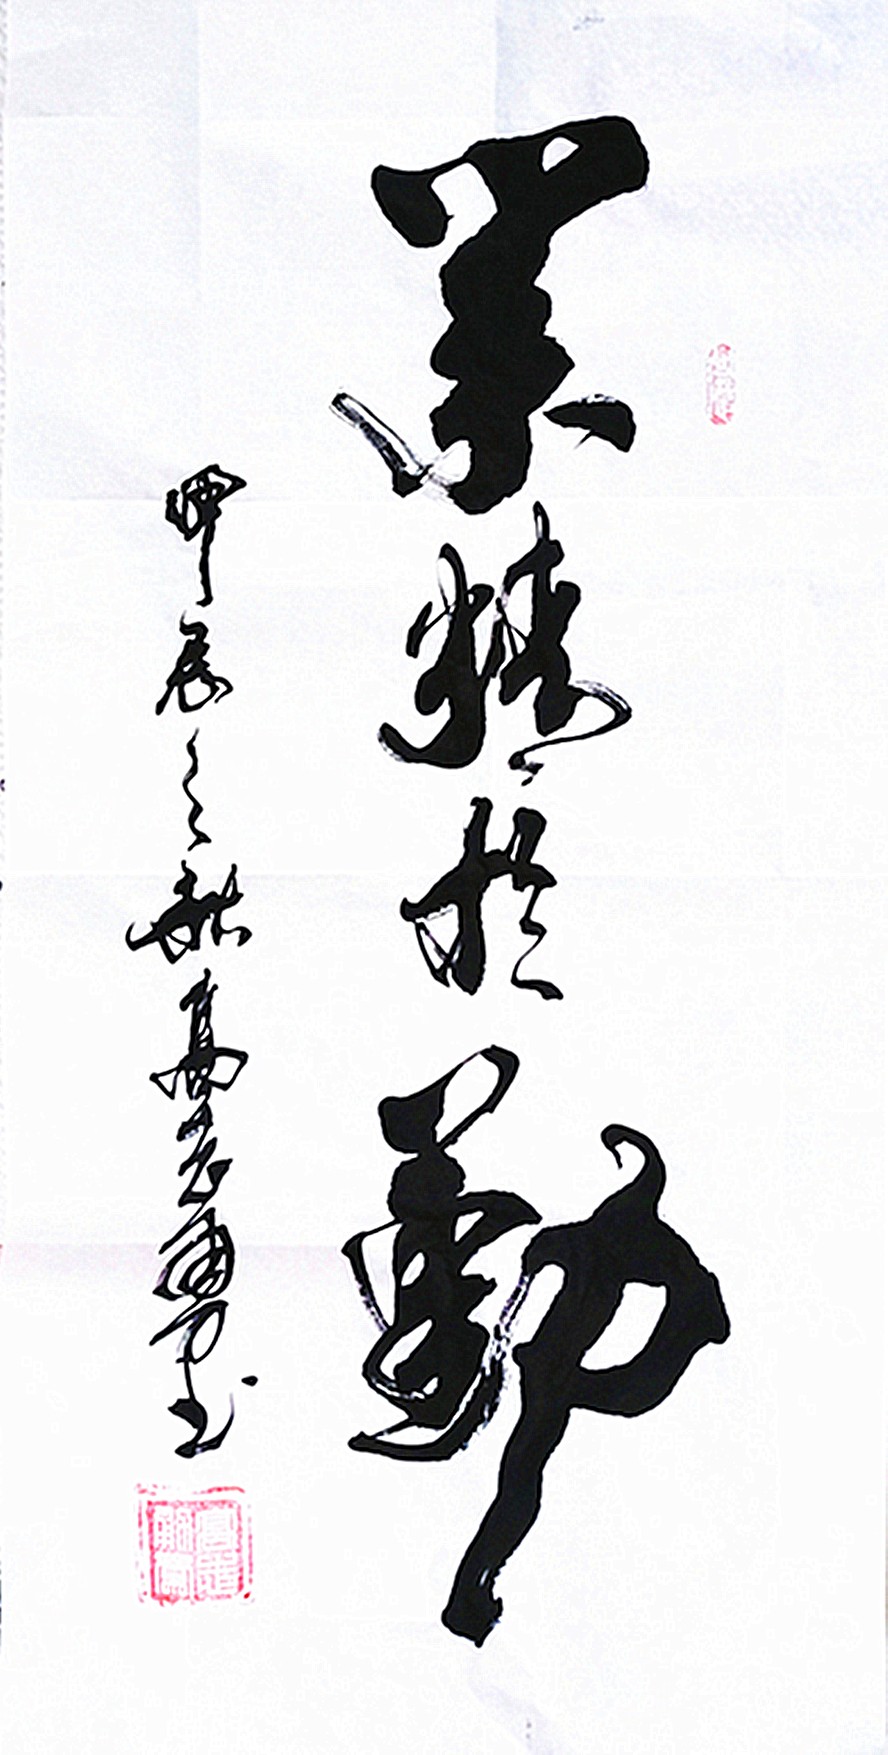 業精於勤
甲辰之秋高志勇書